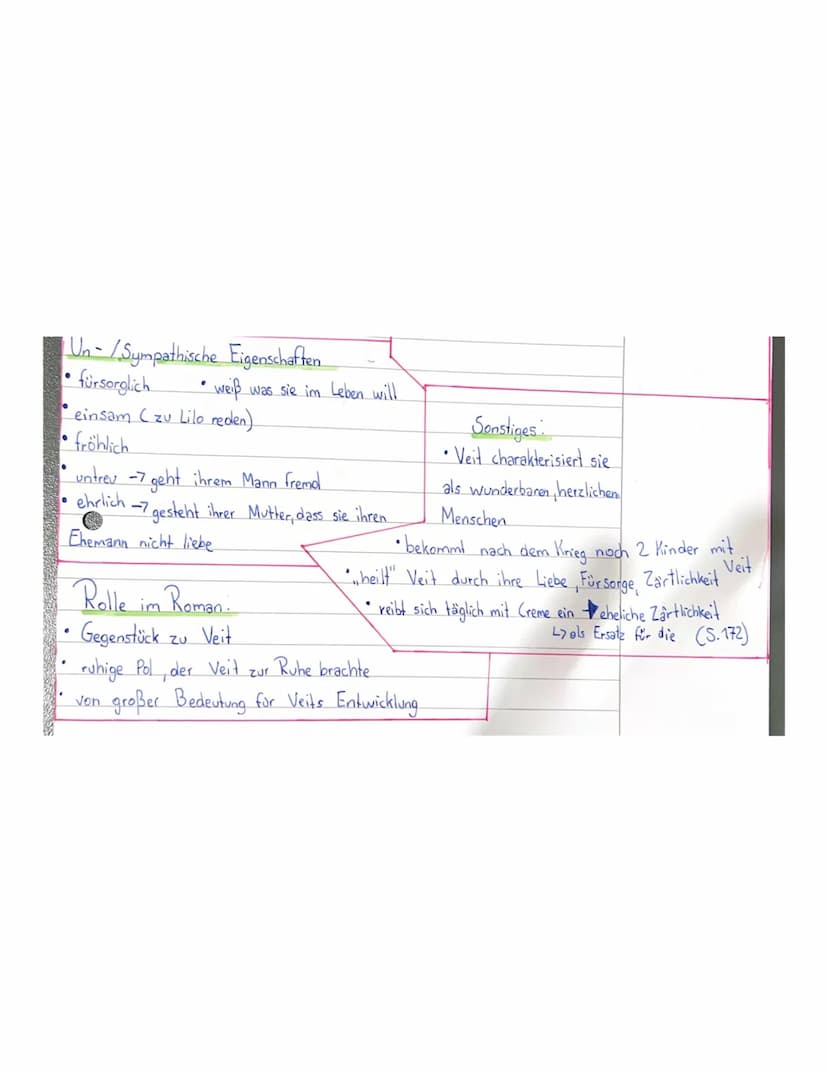 Un-/Sympathische Eigenschaften
• fürsorglich • weiß was sie im Leben will
• einsam (zu Lilo reden)
• fröhlich
• untreu → geht ihrem Mann fremd
• ehrlich → gesteht ihrer Mutter, dass sie ihren
Ehemann nicht liebe
Rolle im Roman:
• Gegenstück zu Veit
• ruhige Pol, der Veit zur Ruhe brachte
• von großer Bedeutung für Veits Entwicklung
Sonstiges:
• Veit charakterisiert sie
als wunderbaren, herzlichen
Menschen
• bekommt nach dem Krieg noch 2 Kinder mit
Veit
• „heilt" Veit durch ihre Liebe, Fürsorge, Zärtlichkeit
• reibt sich täglich mit Creme ein → eheliche Zärtlichkeit
↳ als Ersatz für die (S.172)